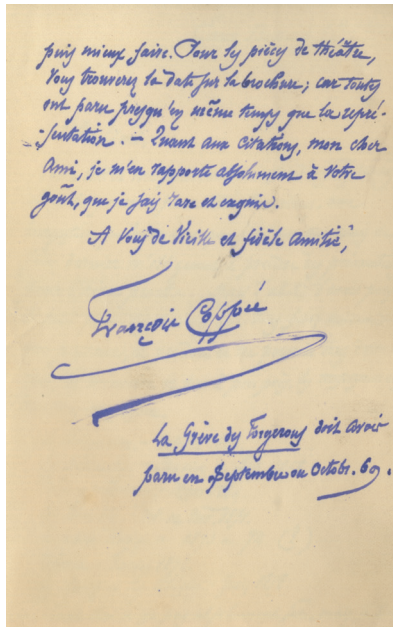 puis mieux faire. Pour les pièces de théâtre,
vous trouverez la date sur la brochure ; car toutes
ont paru presqu'en même temps que la repré-
-sentation. — Quant aux citations, mon cher
Ami, je m'en rapporte absolument à votre
goût, que je sais rare et exquis.
A vous de vieille et fidèle amitié,
François Coppée
La Grève des Forgerons doit avoir
paru en Septembre ou Octobr. 69.